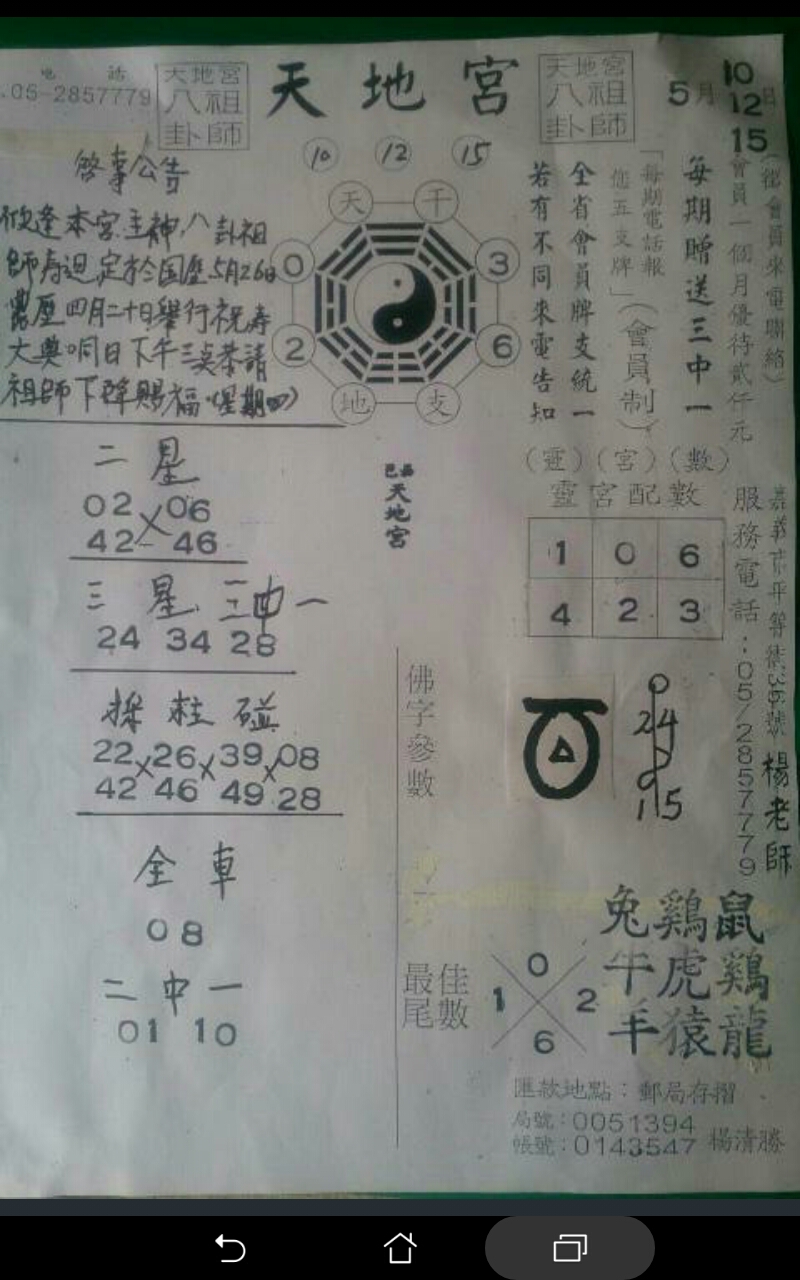 電話
05-2857779
天地宮
八祖
卦師
天地宮
天地宮
八祖
卦師
5月10 12 15日
10 12 15
啓事公告
欣逢本宮主神八卦祖
師壽诞定於国歷5月26日
農歷四月二十日舉行祝壽
大典同日下午三点恭請
祖師下降賜福(星期四)
天 干
0 3
2 6
地 支
(徵會員來電聯絡)
會員一個月優待貳仟元
每期贈送三中一
「每期電話報
您五支牌」(會員制)
全省會員牌支統一
若有不同來電告知
(靈)(宮)(數)
靈宮配數
1 0 6
4 2 3
天地宮
二星
02 × 06
42 46
三星 三中一
24 34 28
採柱碰
22 × 26 × 39 × 08
42 46 49 28
全車
08
二中一
01 10
佛字參數
0
24
15
嘉義市平等街36號 楊老師
服務電話:05/2857779
最佳
尾數
0
1 2
6
兔鷄鼠
牛虎鷄
羊猿龍
匯款地點:郵局存摺
局號:0051394
帳號:0143547 楊清勝